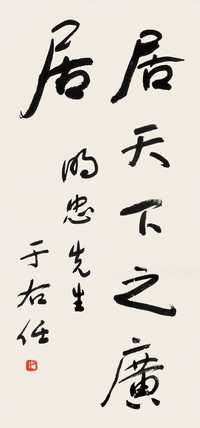 居天下之廣
居
明忠先生
于右任